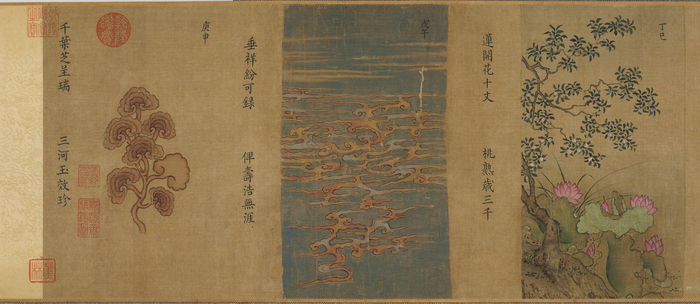 丁巳
蓮開花十丈 桃熟歲三千
戊午
垂祥紛可錄 俾壽浩無涯
庚申
千葉芝呈瑞 三河玉效珍